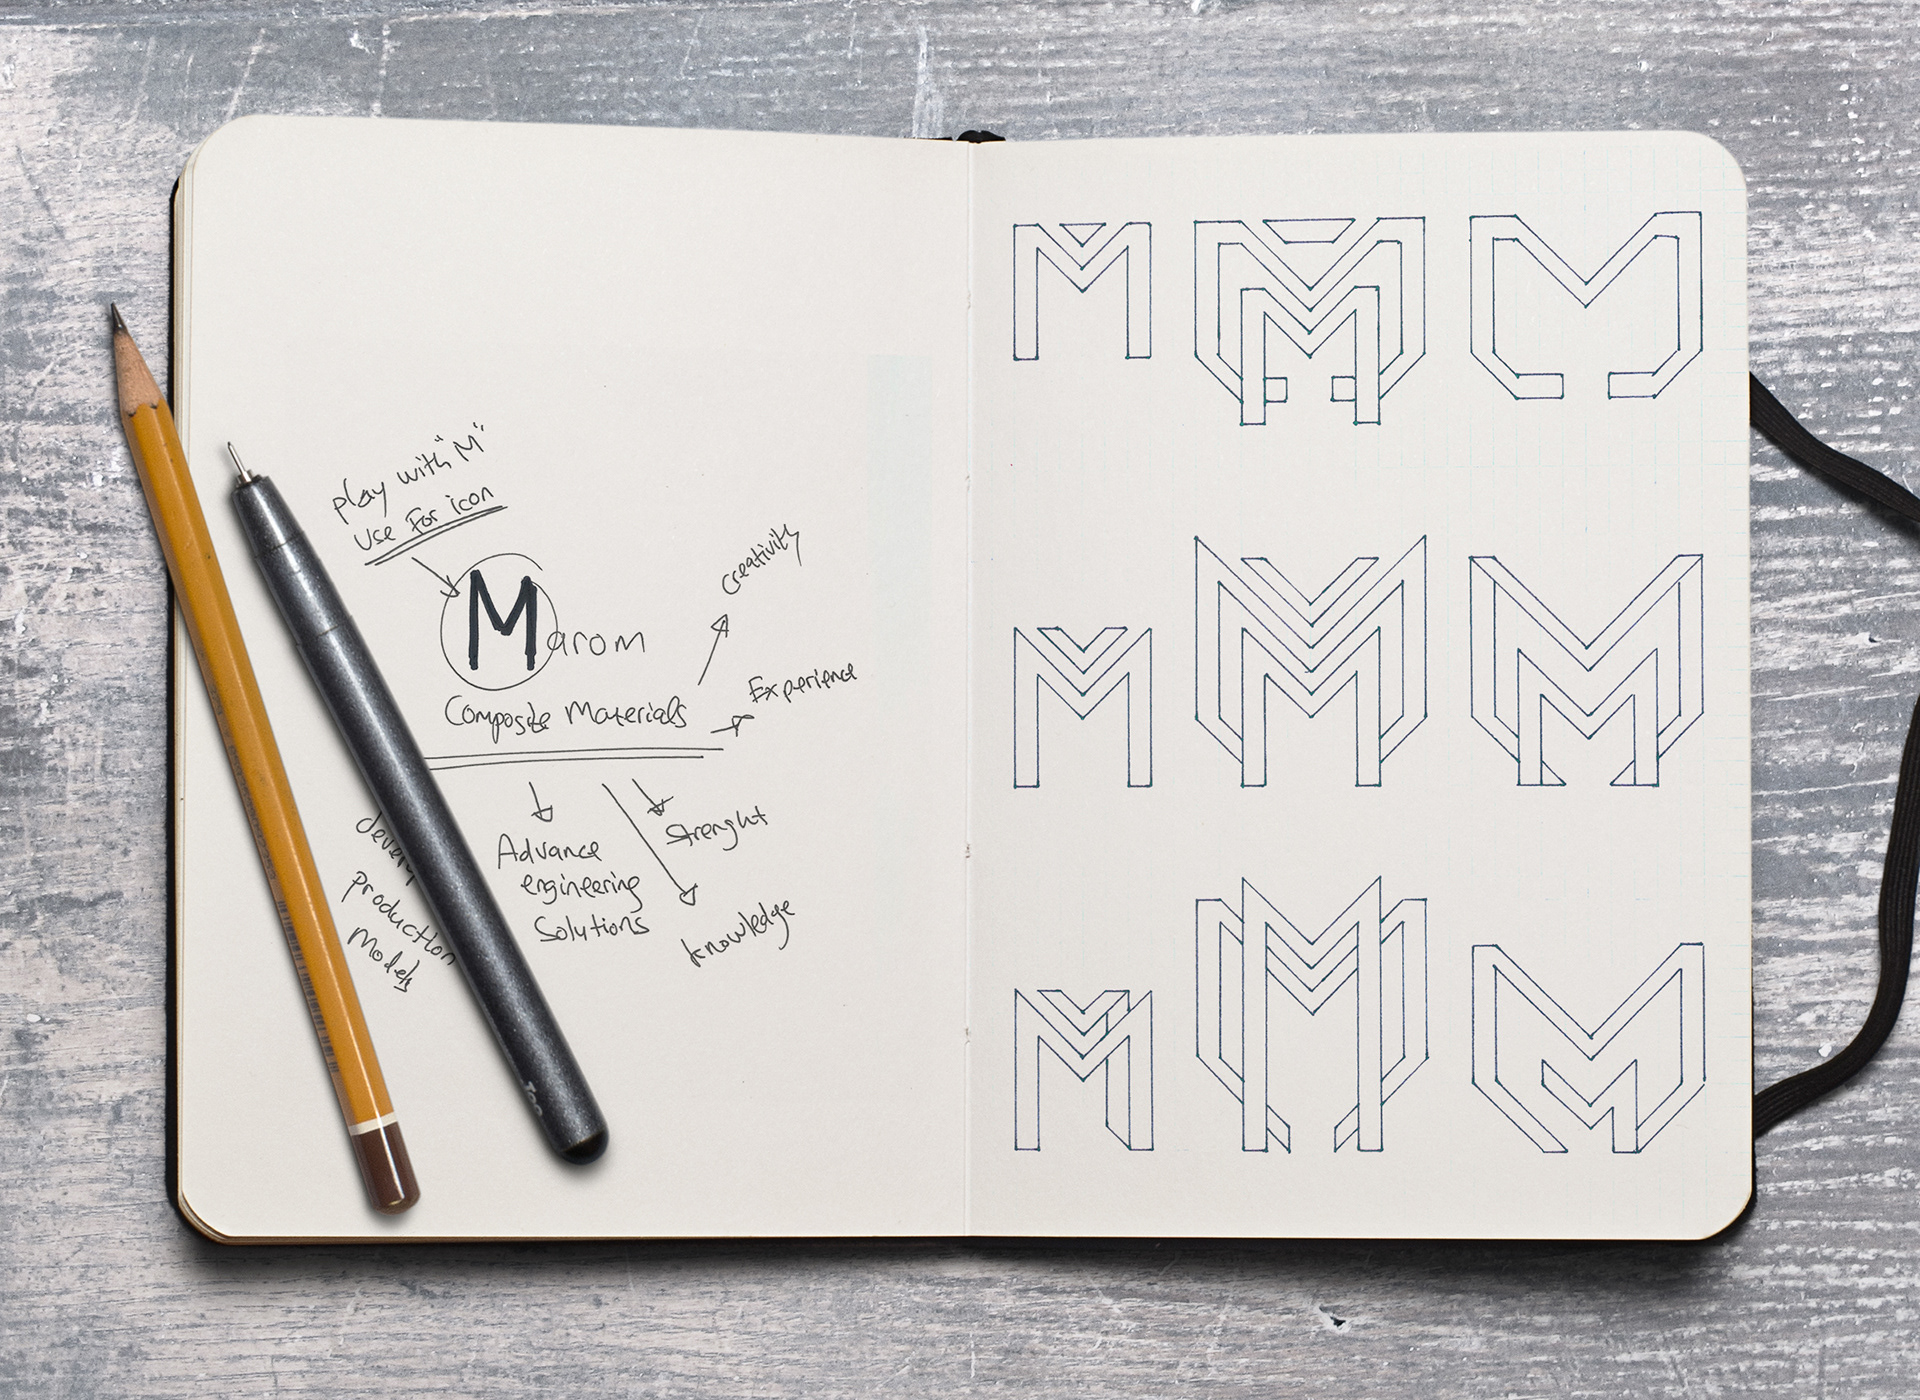 play with "M"
Use For icon
Marom
Composite Materials
creativity
Experience
Strenght
knowledge
Advance
engineering
Solutions
production
Models